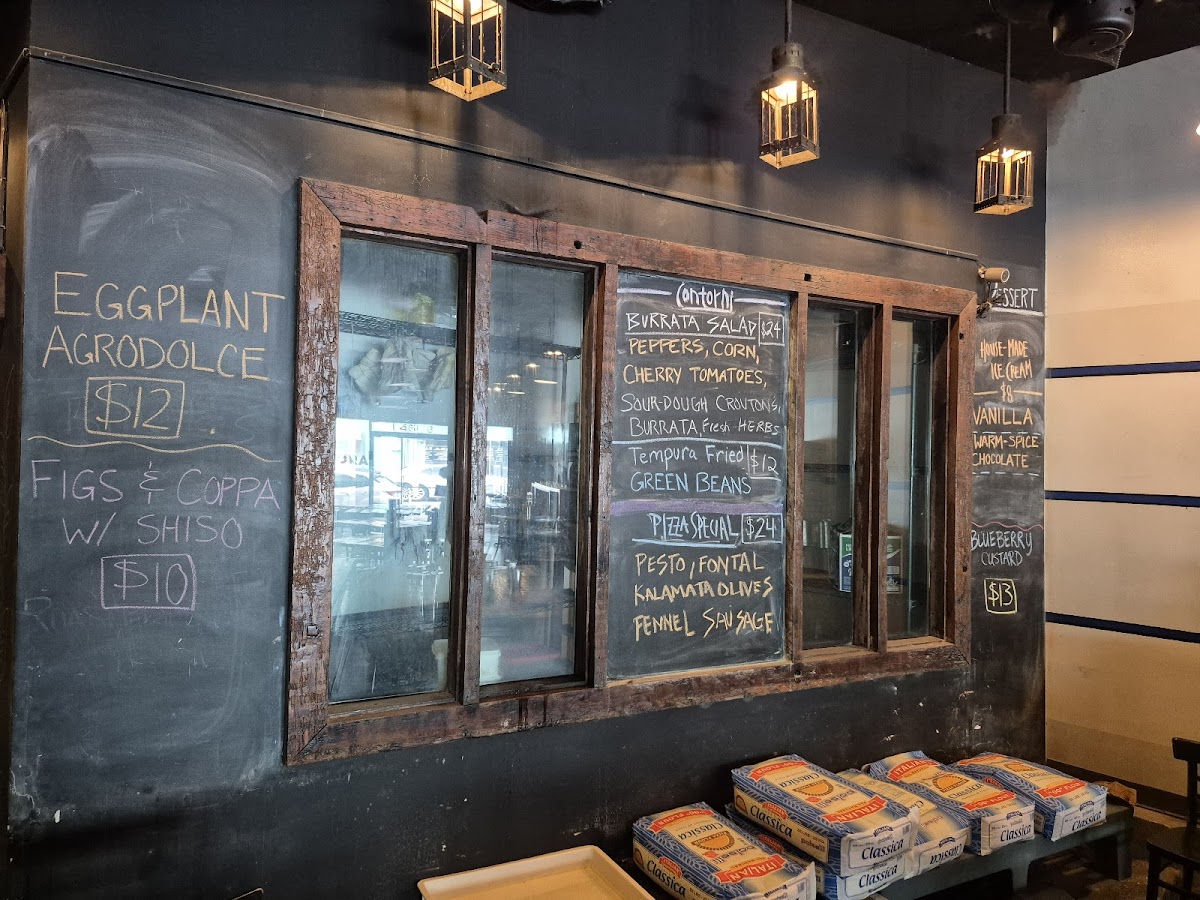 EGGPLANT
AGRODOLCE
$12
FIGS & COPPA
W/ SHISO
$10
Contorni
BURRATA SALAD $24
PEPPERS, CORN,
CHERRY TOMATOES,
SOUR-DOUGH CROUTONS,
BURRATA FresH HERBS
Tempura Fried $12
GREEN BEANS
PIZZA SPECIAL $24
PESTO, FONTAL
KALAMATA OLIVES
FENNEL SAUSAGE
HOUSE-MADE
ICE CREAM
$8
VANILLA
WARM-SPICE
CHOCOLATE
BLUEBERRY
CUSTARD
$13
ITALIAN
Classica
Classica
ITALIAN
Classica
Classica
Classica
Classica
ITALIAN
Classica
ITALIAN
Classica